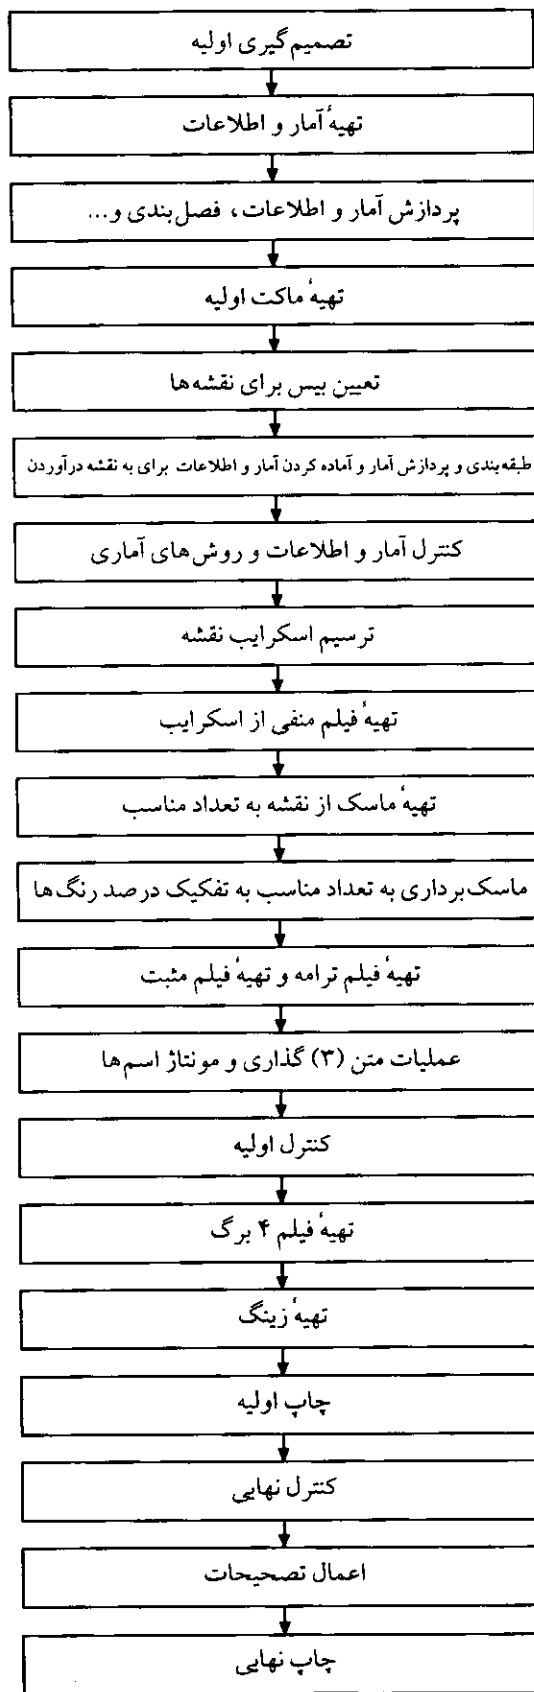 تصمیم‌گیری اولیه
تهیهٔ آمار و اطلاعات
پردازش آمار و اطلاعات، فصل‌بندی و...
تهیهٔ ماکت اولیه
تعیین بیس برای نقشه‌ها
طبقه‌بندی و پردازش آمار و آماده کردن آمار و اطلاعات برای به نقشه درآوردن
کنترل آمار و اطلاعات و روش‌های آماری
ترسیم اسکرایب نقشه
تهیهٔ فیلم منفی از اسکرایب
تهیهٔ ماسک از نقشه به تعداد مناسب
ماسک‌برداری به تعداد مناسب به تفکیک درصد رنگ‌ها
تهیهٔ فیلم ترامه و تهیهٔ فیلم مثبت
عملیات متن (۳) گذاری و مونتاژ اسم‌ها
کنترل اولیه
تهیهٔ فیلم ۴ برگ
تهیهٔ زینگ
چاپ اولیه
کنترل نهایی
اعمال تصحیحات
چاپ نهایی